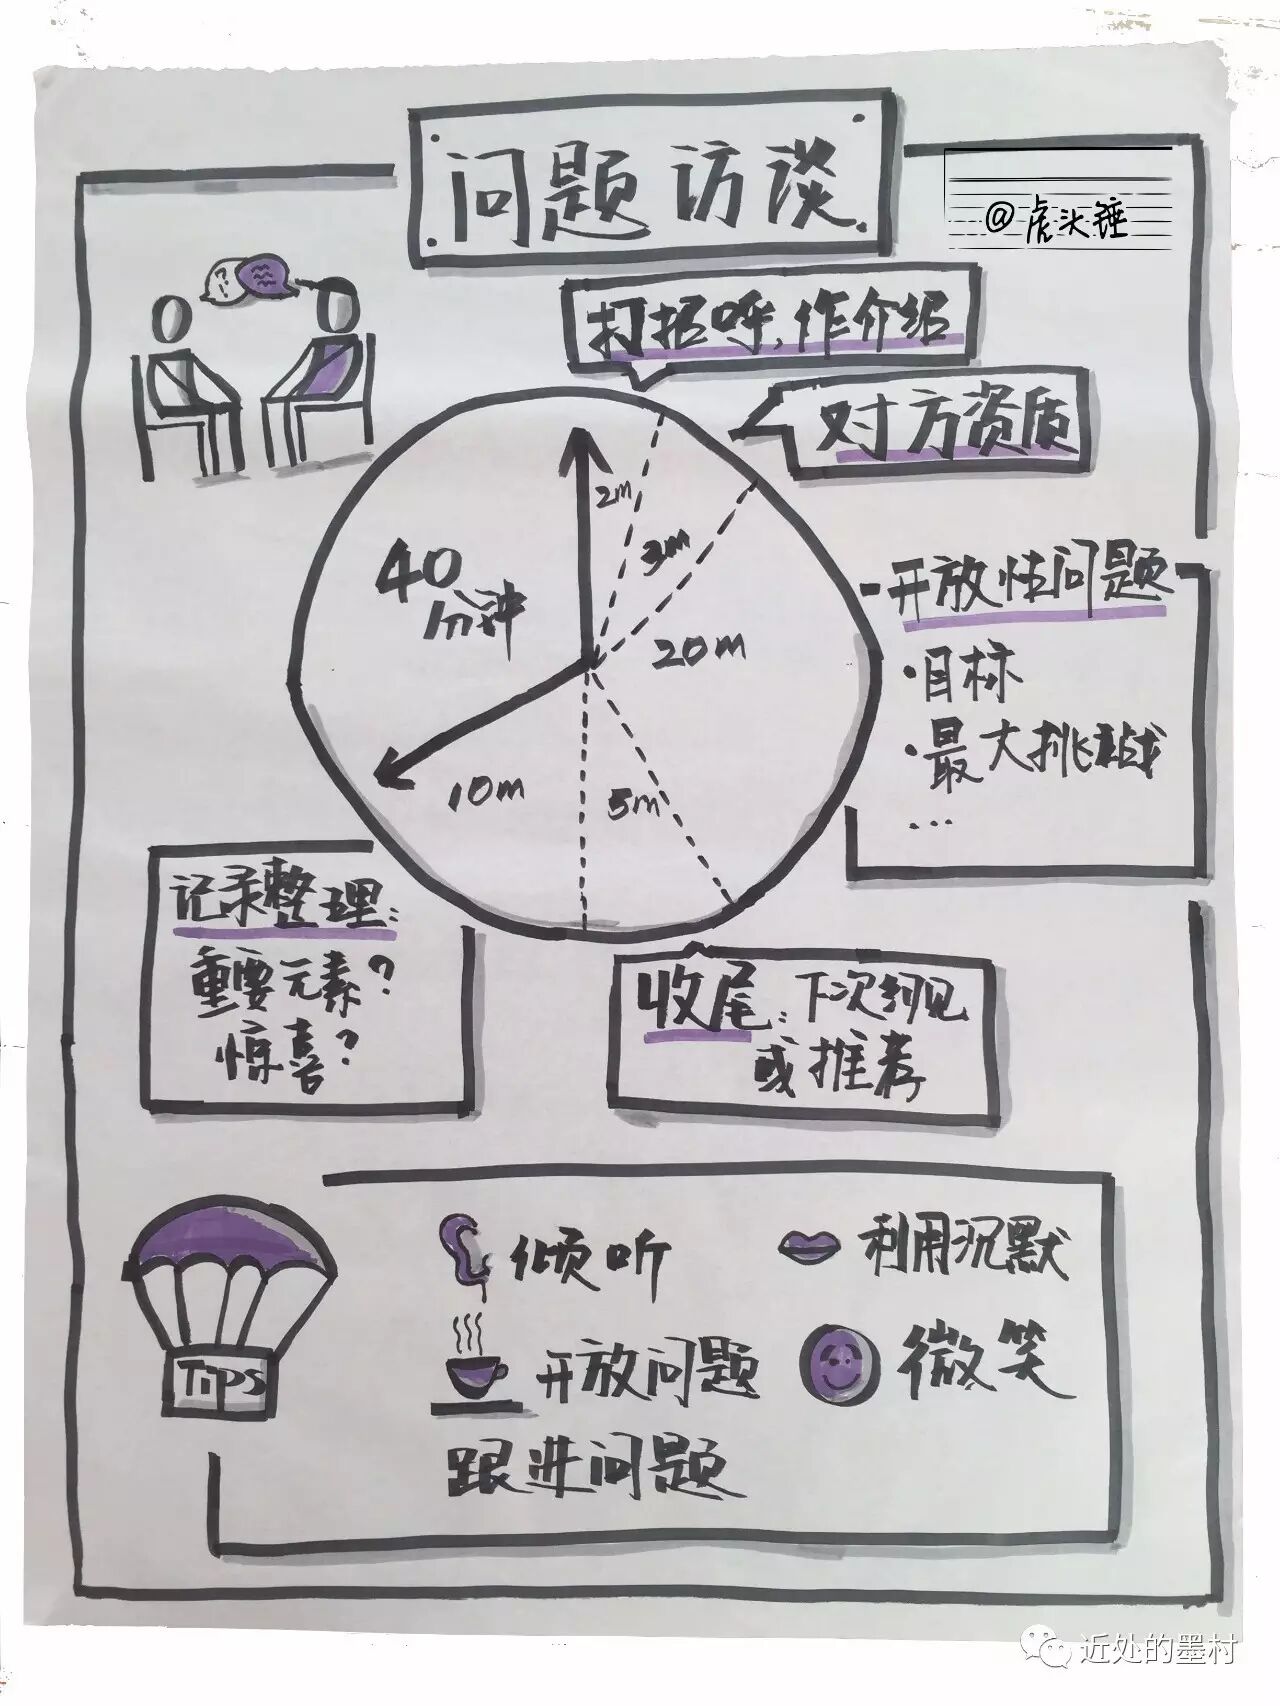 问题访谈
@虎头锤
打招呼,作介绍
对方资质
2m
3m
40
分钟
20m
10m
5m
开放性问题
·目标
·最大挑战
...
记录整理:
重要元素?
惊喜?
收尾:下次约见
或推荐
TiPS
倾听
利用沉默
开放问题
微笑
跟进问题
近处的墨村